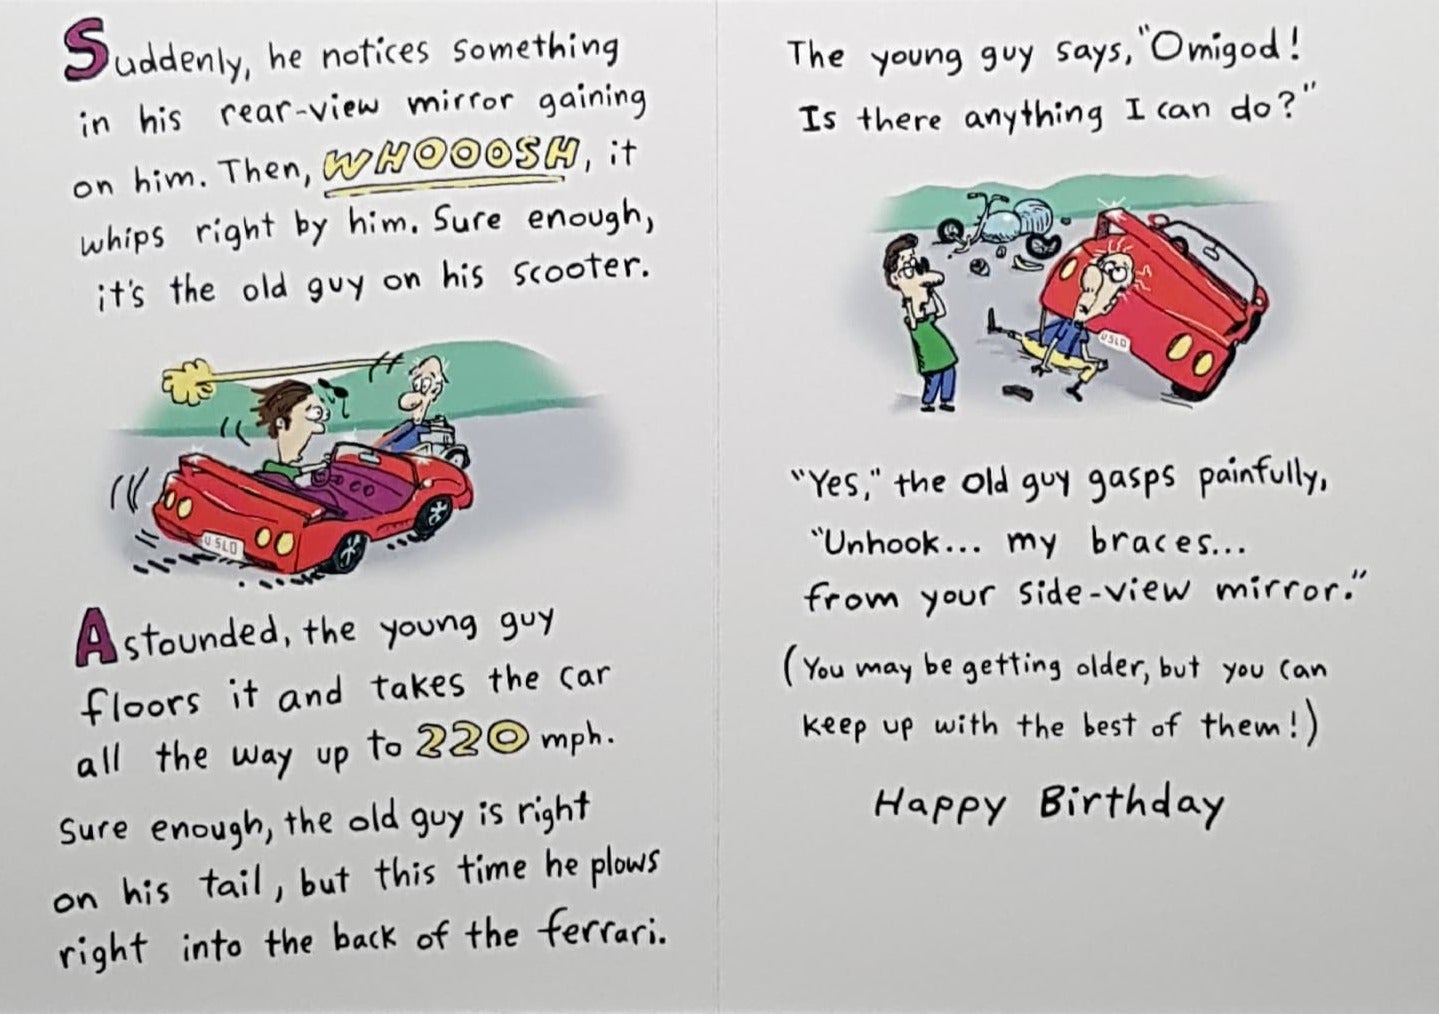 Suddenly, he notices something
in his rear-view mirror gaining
on him. Then, WHOOOSH, it
whips right by him. Sure enough,
it's the old guy on his scooter.
U SLO
Astounded, the young guy
floors it and takes the car
all the way up to 220 mph.
Sure enough, the old guy is right
on his tail, but this time he plows
right into the back of the ferrari.
The young guy says, "Omigod!
Is there anything I can do?"
U SLO
"Yes," the old guy gasps painfully,
"Unhook... my braces...
from your side-view mirror."
(You may be getting older, but you can
keep up with the best of them!)
Happy Birthday